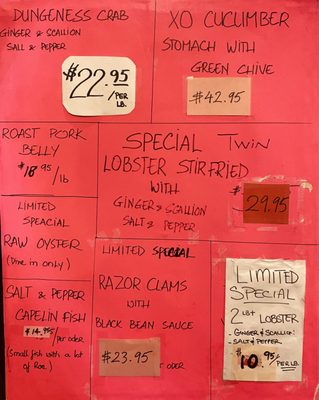 DUNGENESS CRAB
GINGER & SCALLION
SALT & PEPPER
$22.95
/PER
LB.
XO CUCUMBER
STOMACH WITH
GREEN CHIVE
$42.95
ROAST PORK
BELLY
$18.95
/lb
SPECIAL TWIN
LOBSTER STIRFRIED
WITH
GINGER & SCALLION
SALT & PEPPER
$
29.95
LIMITED
SPEACIAL
RAW OYSTER
(Dine in only)
SALT & PEPPER
CAPELIN FISH
$14.95/per oder
(Small fish with a lot
of Roe.)
LIMITED SPECIAL
RAZOR CLAMS
WITH
BLACK BEAN SAUCE
$23.95
per oder
LIMITED
SPECIAL
2 LB↑ LOBSTER
- GINGER & SCALLION
- SALT & PEPPER
$10.95/PER LB